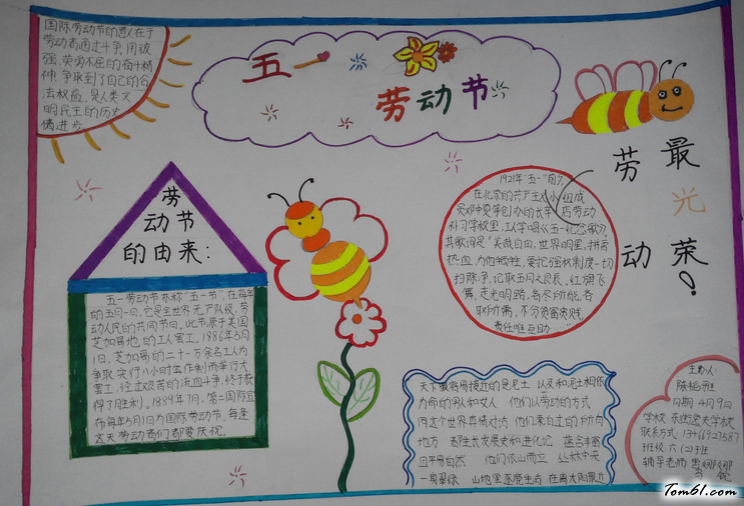 国际劳动节的意义在于
劳动者通过斗争,用顽
强、英勇不屈的奋斗精
神,争取到了自己的合
法权益,是人类文
明民主的历史
性进步
五一
劳动节
劳动最光荣!
劳
动节
的由来:
五一劳动节亦称"五一节",在每年
的五月一日。它是全世界无产阶级、劳
动人民的共同节日。此节源于美国
芝加哥
的工人罢工。1886年5月
1日,芝加哥的二十一万余名工人为
争取实行八小时工作制而举行大
罢工,经过艰苦的流血斗争,终于获
得了胜利。1889年7月,第二国际宣
布每年5月1日为国际劳动节。每逢
这天劳动者们都要庆祝。
1921年"五一"前夕,
在北京的共产主义小组成
员邓中夏等创办的长辛店劳动
补习学校里,工人学唱《五一纪念歌》。
其歌词是"美哉自由,世界明星,拼吾
热血,为他牺牲,要把强权制度一切
扫除净,记取五月一日之良辰。红旗飞
舞,走光明路,各尽所能,各
取所需,不分贫富贵贱,
责任唯互助
天下最容易接近的是泥土 以及和泥土相依
为命的男人和女人 他们以劳动的方式
同这个世界真情对流
地方
他们依山而立 丛林中央
主办人:
日期 4月9日
学校
联系方式:
班级 六(2)班
辅导老师
Tom61.com